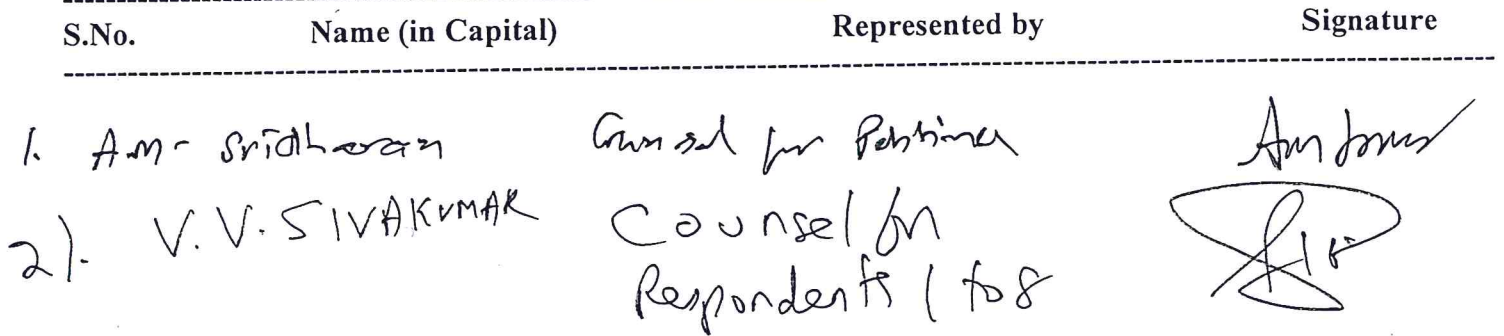 S.No. Name (in Capital) Represented by Signature
1. A.M. Sridharan Counsel for Petitioner
2). V.V. SIVAKUMAR Counsel for
Respondents 1 to 8